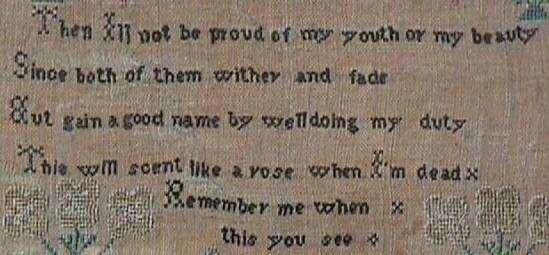 Then I'll not be proud of my youth or my beauty
Since both of them wither and fade
But gain a good name by well doing my duty
This will scent like a rose when I'm dead x
Remember me when x
this you see